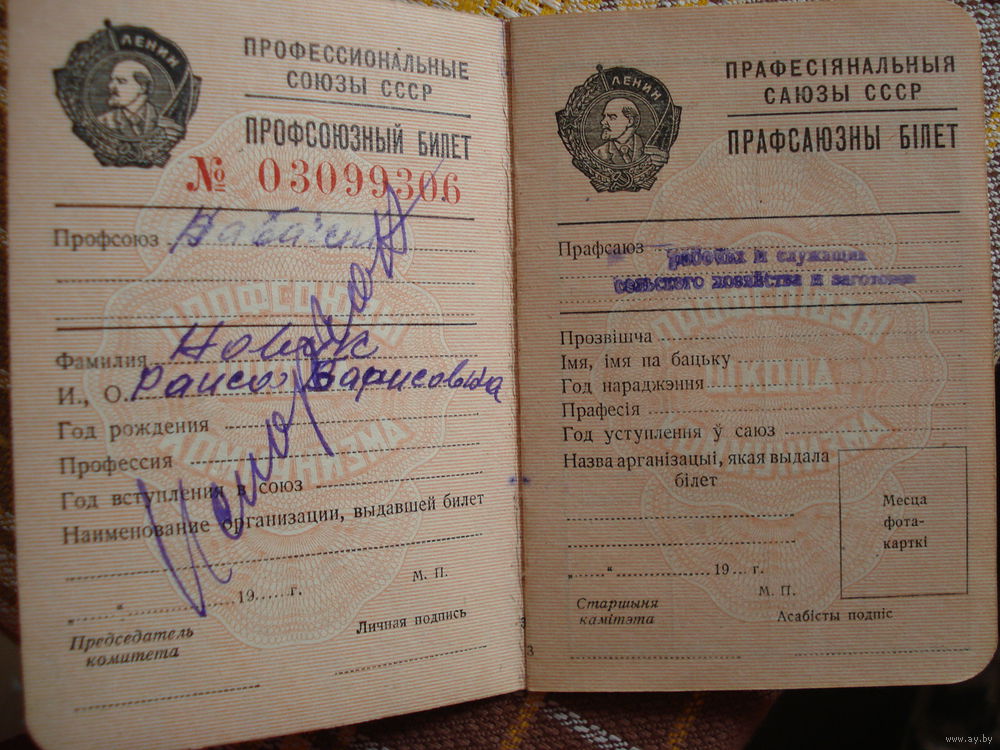 ЛЕНИН
ПРОФЕССИОНАЛЬНЫЕ
СОЮЗЫ СССР
ПРОФСОЮЗНЫЙ БИЛЕТ
№ 03099306
Профсоюз
Фамилия Новик
И., О. Раиса Барисовна
Год рождения
Профессия
Год вступления в союз
Наименование организации, выдавшей билет
„ “ 19 г.
М. П.
Председатель
комитета
Личная подпись
ЛЕНИН
ПРАФЕСІЯНАЛЬНЫЯ
САЮЗЫ СССР
ПРАФСАЮЗНЫ БІЛЕТ
Прафсаюз рабочих и служащих
сельского хозяйства и заготовок
Прозвішча
Імя, імя па бацьку
Год нараджэння
Прафесія
Год уступлення ў саюз
Назва арганізацыі, якая выдала
білет
Месца
фота-
карткі
„ “ 19 г.
М. П.
Старшыня
камітэта
Асабісты подпіс
3
www.ay.by